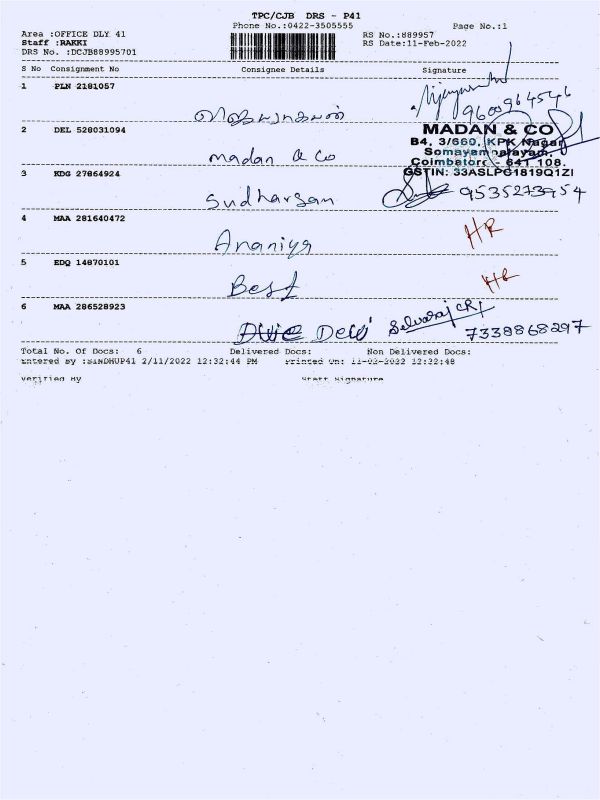 TPC/CJB DRS - P41
Phone No.:0422-3505555 Page No.:1
Area :OFFICE DLY 41 RS No.:889957
Staff :RAKKI RS Date:11-Feb-2022
DRS No. :DCJB88995701
S No Consignment No Consignee Details Signature
1 PLN 2181057
விஜயராகவன் 9600964546
2 DEL 528031094 MADAN & CO
B4, 3/660, KPK Nagar
madan & co Somayampalayam,
Coimbatore - 641 108.
3 KDG 27864924 GSTIN: 33ASLPG1819Q1ZI
Sudharsan 9535273954
4 MAA 281640472
Ananiya HR
5 EDQ 14870101
Best HR
6 MAA 286528923
Devi Selvaraj CR, 7338868297
Total No. Of Docs: 6 Delivered Docs: Non Delivered Docs:
Entered By :SINDHUP41 2/11/2022 12:32:44 PM Printed On: 11-02-2022 12:32:48
Verified By Staff Signature